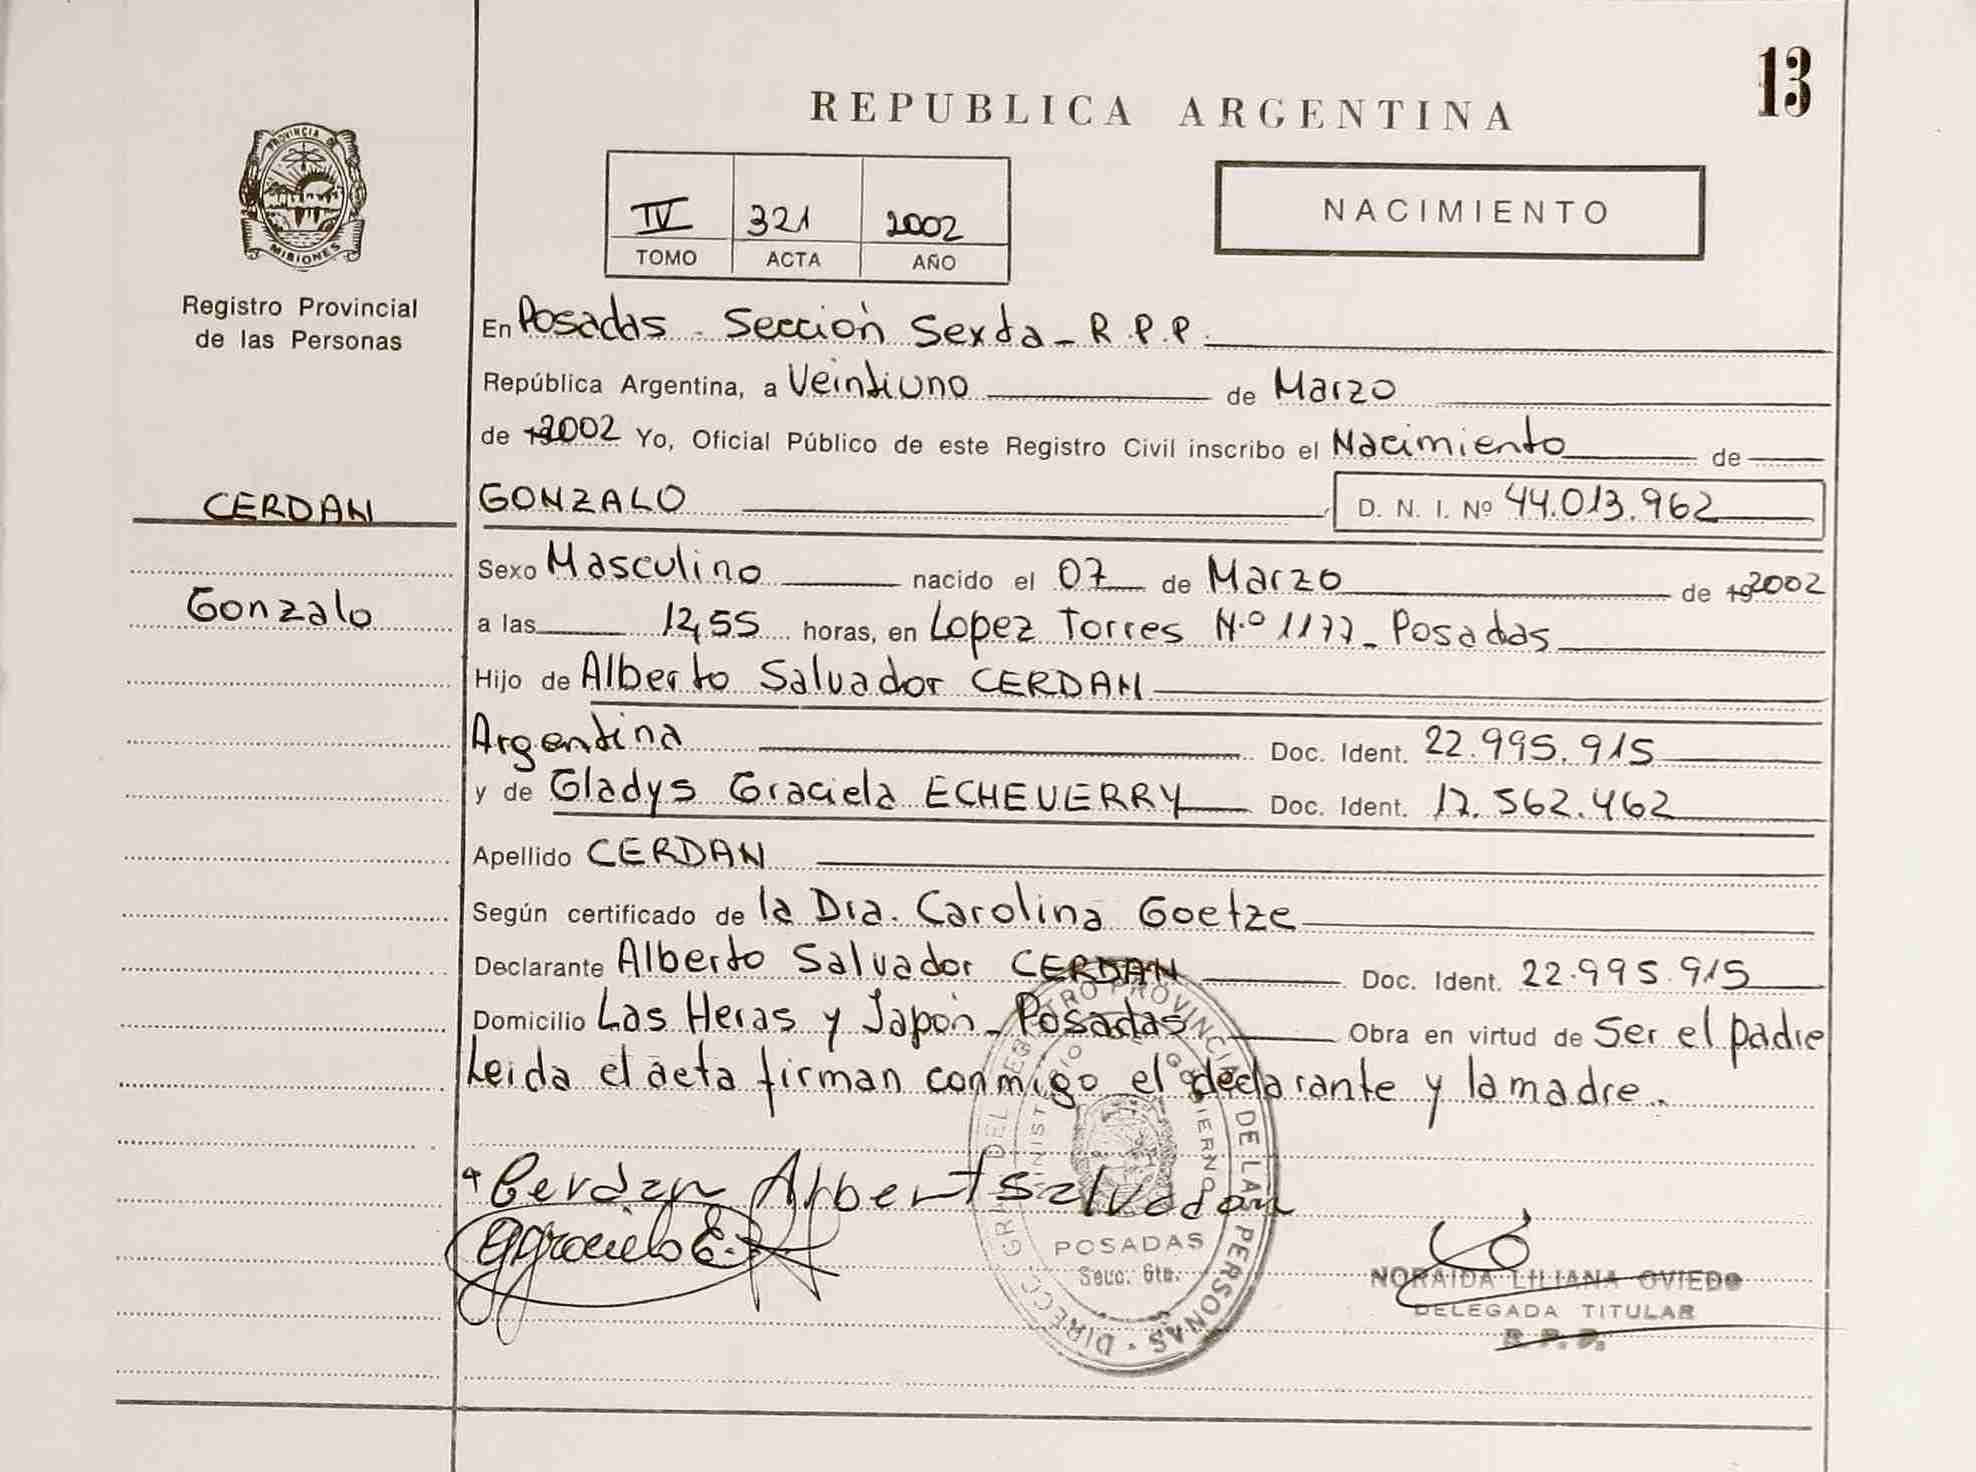 13
REPUBLICA ARGENTINA
PROVINCIA DE
MISIONES
Registro Provincial
de las Personas
IV 321 2002
TOMO ACTA AÑO
NACIMIENTO
En Posadas - Sección Sexta - R.P.P.
República Argentina, a Veintiuno de Marzo
de 2002 Yo, Oficial Público de este Registro Civil inscribo el Nacimiento de
CERDAN
GONZALO D. N. I. Nº 44.013.962
Sexo Masculino nacido el 07 de Marzo de 192002
Gonzalo
a las 12,55 horas, en Lopez Torres N.º 1177 - Posadas
Hijo de Alberto Salvador CERDAN
Argentina Doc. Ident. 22.995.915
y de Gladys Graciela ECHEVERRY Doc. Ident. 17.562.462
Apellido CERDAN
Según certificado de la Dra. Carolina Goetze
Declarante Alberto Salvador CERDAN Doc. Ident. 22.995.915
Domicilio Las Heras y Japón - Posadas Obra en virtud de Ser el padre
Leida el acta firman conmigo el declarante y la madre.
Cerdan Albert Salvador
Ggraciela E.
DIRECC. GRAL DEL REGISTRO PROVINCIAL DE LAS PERSONAS
MINISTERIO DE GOBIERNO
POSADAS
Secc. 6ta.
NORAIDA LILIANA OVIEDO
DELEGADA TITULAR
R. P. P.